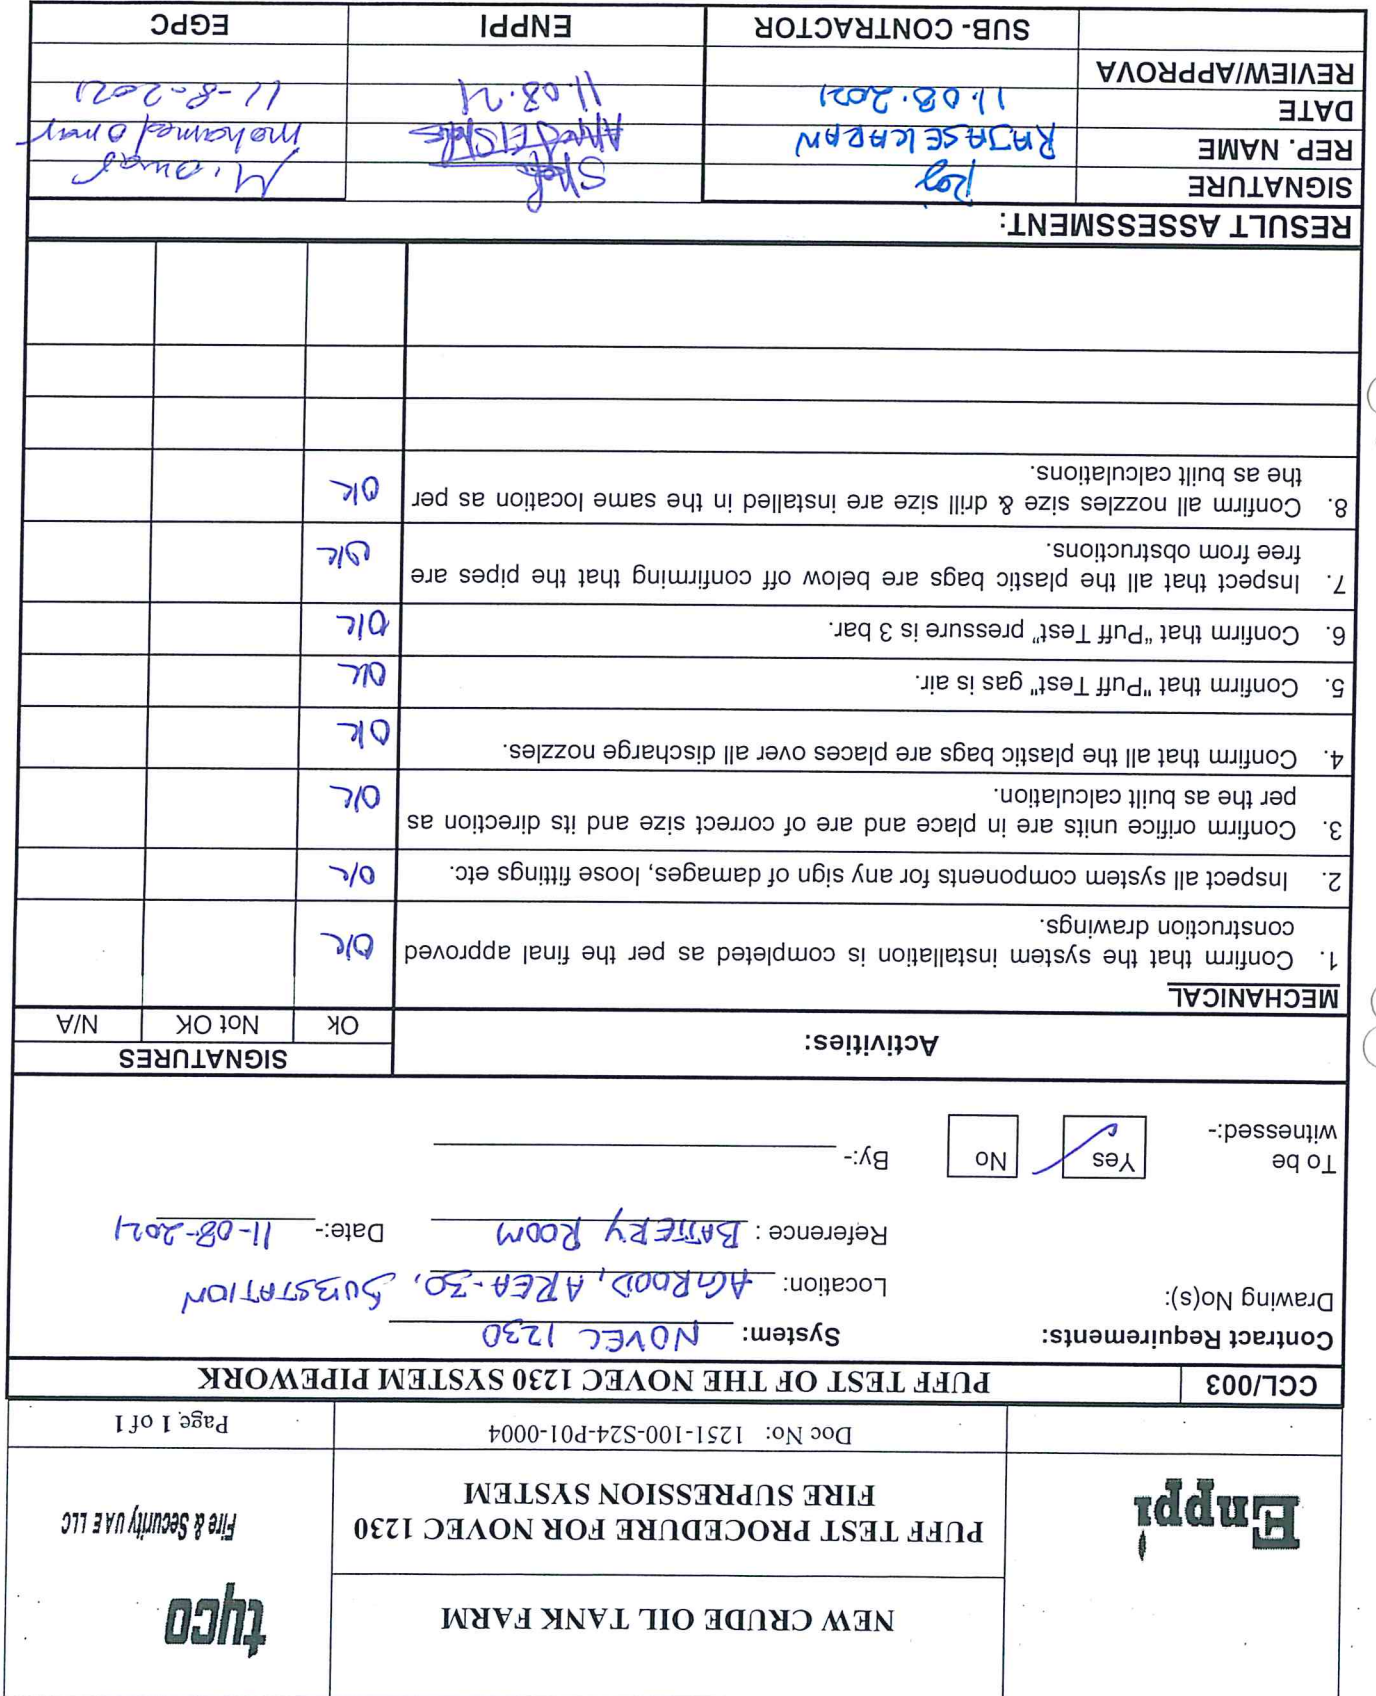 NEW CRUDE OIL TANK FARM
Enppi
tyco
Fire & Security UAE LLC
PUFF TEST PROCEDURE FOR NOVEC 1230
FIRE SUPRESSION SYSTEM
Doc No: 1251-100-S24-P01-0004
Page 1 of 1
CCL/003
PUFF TEST OF THE NOVEC 1230 SYSTEM PIPEWORK
Contract Requirements:
System: NOVEC 1230
Drawing No(s):
Location: AGROOD, AREA-30, SUBSTATION
Reference : BATTERY ROOM
Date:- 11-08-2021
To be
witnessed:-
Yes
No
By:-
Activities:
SIGNATURES
Ok
Not OK
N/A
MECHANICAL
1. Confirm that the system installation is completed as per the final approved
construction drawings.
Ok
2. Inspect all system components for any sign of damages, loose fittings etc.
Ok
3. Confirm orifice units are in place and are of correct size and its direction as
per the as built calculation.
Ok
4. Confirm that all the plastic bags are places over all discharge nozzles.
Ok
5. Confirm that "Puff Test" gas is air.
Ok
6. Confirm that "Puff Test" pressure is 3 bar.
Ok
7. Inspect that all the plastic bags are below off confirming that the pipes are
free from obstructions.
Ok
8. Confirm all nozzles size & drill size are installed in the same location as per
the as built calculations.
Ok
RESULT ASSESSMENT:
SIGNATURE
Raj
M. Omar
REP. NAME
RAJASEKARAN
mohamed omar
DATE
11.08.2021
11.08.21
11-8-2021
REVIEW/APPROVA
SUB- CONTRACTOR
ENPPI
EGPC